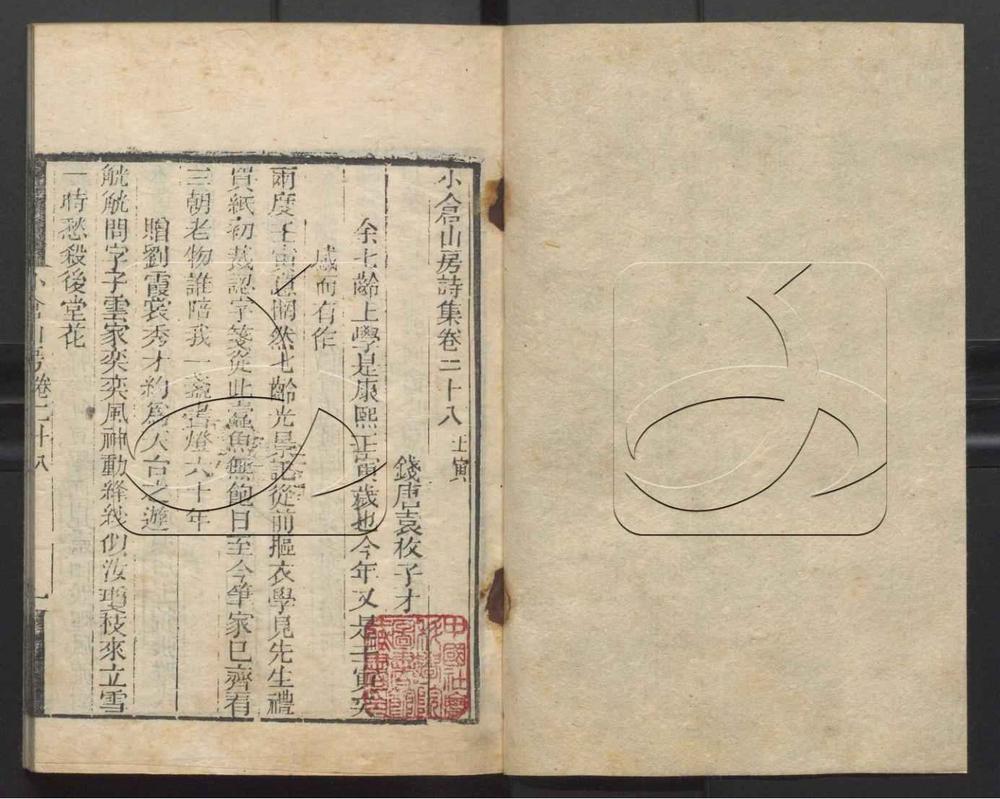 小倉山房詩集卷二十八 壬寅
錢唐袁枚子才
余七齡上學是康熙壬寅歲也今年又是壬寅矣
感而有作
兩度壬寅 惘然七齡光景記從前摳衣學見先生禮
買紙初裁認字箋從此蠹魚無飽日至今筆冢已齊肩
三朝老物誰陪我一盞書燈六十年
贈劉霞裳秀才約為天台之遊
觥觥問字子雲家奕奕風神動絳紗似汝瓊枝來立雪
一時愁殺後堂花
小倉山房卷二十八
一